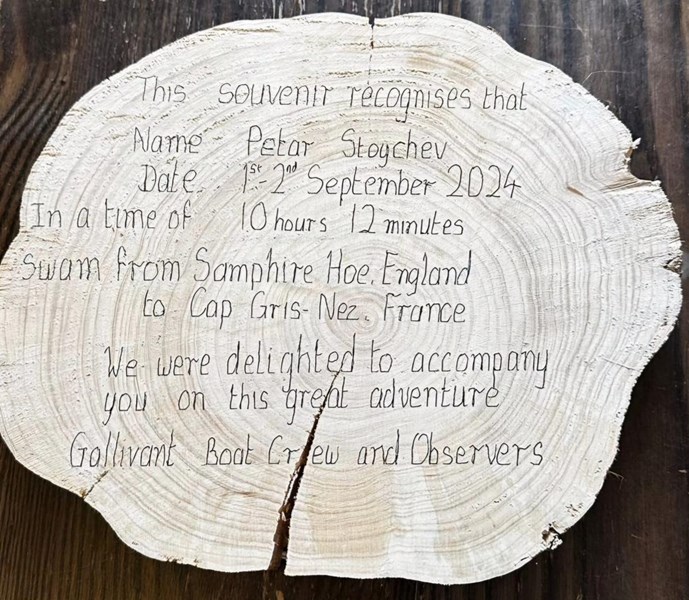 This souvenir recognises that
Name Petar Stoychev
Date 1st-2nd September 2024
In a time of 10 hours 12 minutes
swam from Samphire Hoe, England
to Cap Gris-Nez, France
We were delighted to accompany
you on this great adventure
Gallivant Boat Crew and Observers